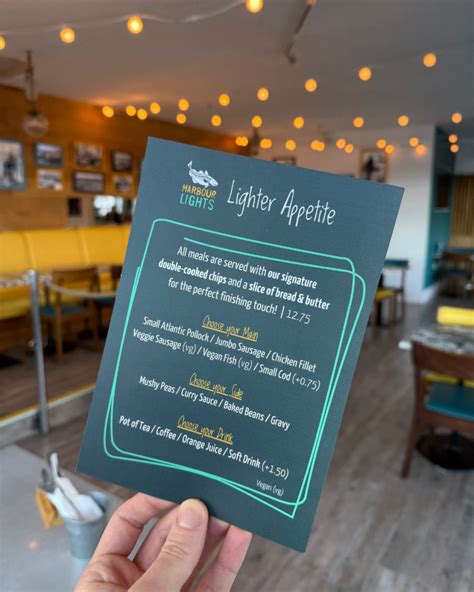 HARBOUR
LIGHTS
Lighter Appetite
All meals are served with our signature
double-cooked chips and a slice of bread & butter
for the perfect finishing touch! | 12.75
Choose your Main
Small Atlantic Pollock / Jumbo Sausage / Chicken Fillet
Veggie Sausage (vg) / Vegan Fish (vg) / Small Cod (+0.75)
Choose your Side
Mushy Peas / Curry Sauce / Baked Beans / Gravy
Choose your Drink
Pot of Tea / Coffee / Orange Juice / Soft Drink (+1.50)
Vegan (vg)